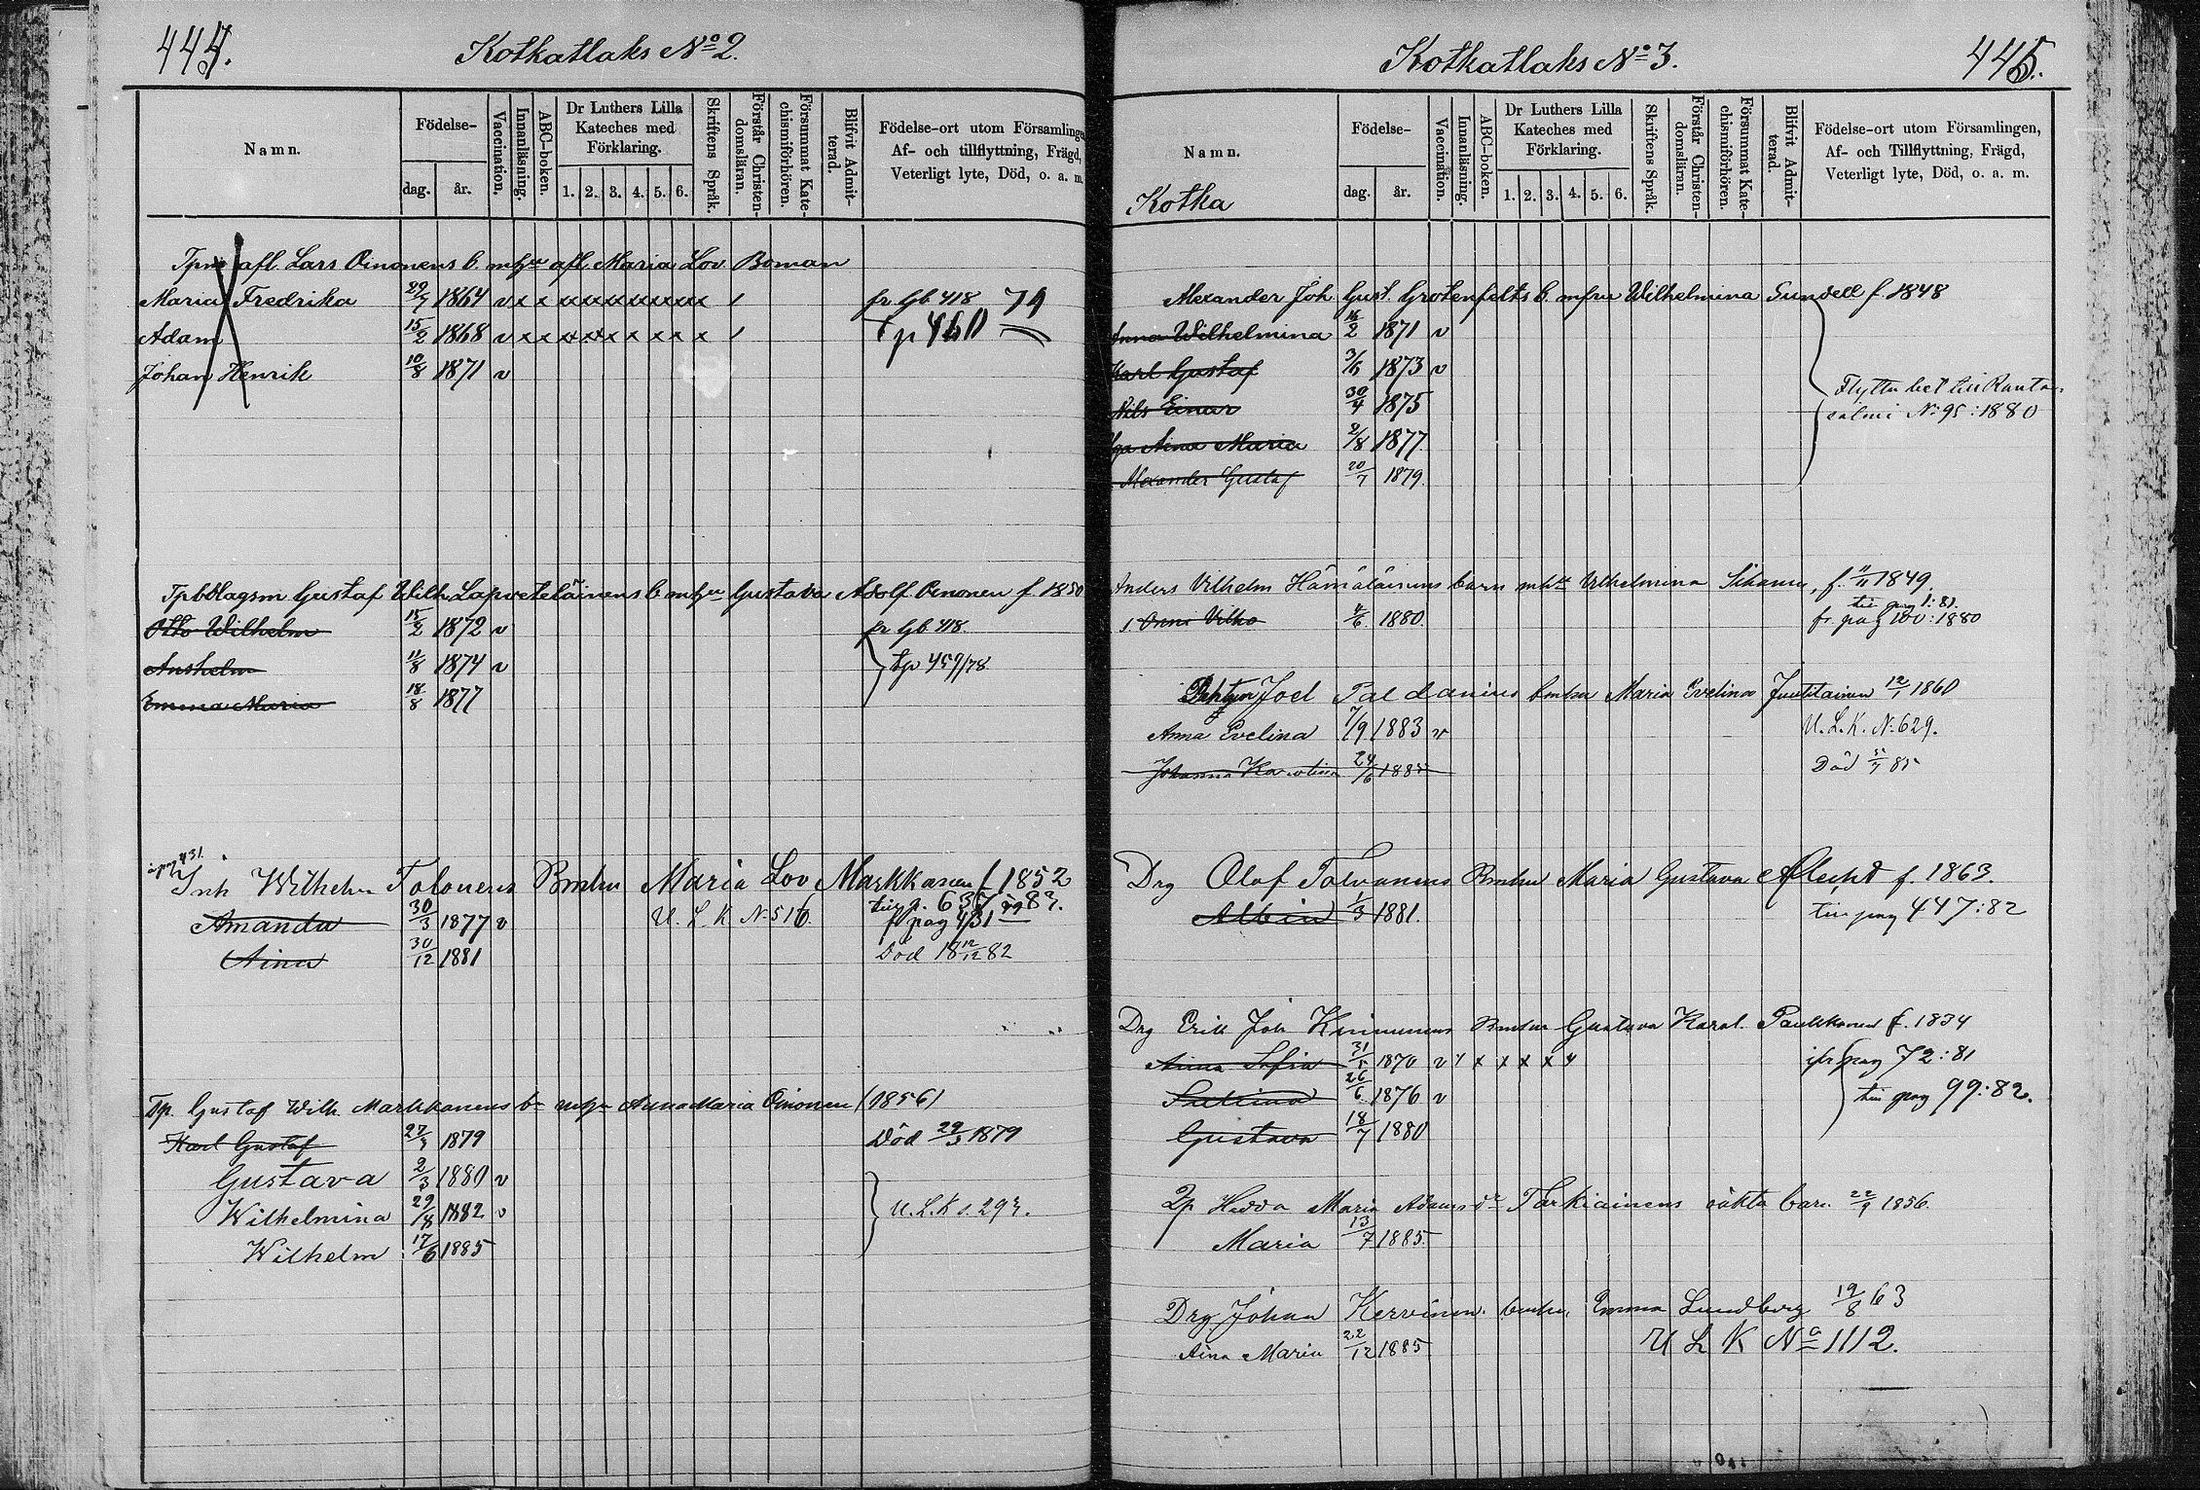 444.
Kotkatlaks No 2.
Namn.
Födelse-
dag.
år.
Vaccination.
Innanläsning.
ABC-boken.
Dr Luthers Lilla
Kateches med
Förklaring.
1. 2. 3. 4. 5. 6.
Skriftens Språk.
Förstår Christen-
domsläran.
Försummat Kate-
chismiförhören.
Blifvit Admit-
terad.
Födelse-ort utom Församlinge
Af- och tillflyttning, Frägd,
Veterligt lyte, Död, o. a. m.
afl. Lars Oinonens b. afl Maria Lov. Boman
Maria Fredrika 29/7 1864 v x x x x x x x x x x fr lb. 418 79
Adam 15/2 1868 v x x x x x x x x x x Tp 460
Johan Henrik 10/8 1871 v
Gustaf Wilh. Lapveteläinens b. Gustava Adolf. Oinonen f. 1850
Otto Wilhelm 15/2 1872 v fr lb. 418.
Anshelm 11/8 1874 v tp 457/78
Emma Maria 18/8 1877
pag 431.
Inh Wilhelm Tolonens Bmhu Maria Lov Markkanen f. 1852
Amanda 30/3 1877 v U. L. K No 516. till p. 637 83.
fr pag 431
Aina 30/12 1881 Död 18 12/12 82
Tp. Gustaf Wilh. Markkanens bn Anna Maria Oinonen (1856)
Karl Gustaf 27/3 1879 Död 29/3 1879
Gustava 2/3 1880 v
Wilhelmina 29/8 1882 v U. L. K s. 293.
Wilhelm 17/6 1885
Kotkatlaks No 3.
445.
Namn.
Kotka
Födelse-
dag.
år.
Vaccination.
Innanläsning.
ABC-boken.
Dr Luthers Lilla
Kateches med
Förklaring.
1. 2. 3. 4. 5. 6.
Skriftens Språk.
Förstår Christen-
domsläran.
Försummat Kate-
chismiförhören.
Blifvit Admit-
terad.
Födelse-ort utom Församlingen,
Af- och Tillflyttning, Frägd,
Veterligt lyte, Död, o. a. m.
Alexander Joh. Gust. Grotenfelts b. m fru Wilhelmina Sundell f. 1848
Anna Wilhelmina 16/2 1871 v
Karl Gustaf 3/6 1873 v
Flytta bet till Ranta-
Nils Einar 30/4 1875
salmi No 95:1880
Aina Maria 2/8 1877.
Alexander Gustaf 20/7 1879.
Anders Vilhelm Hämäläinens barn Vilhelmina f. 11/11 1849.
till pag 1:81.
Onni Vilho 4/6 1880. fr. pag 100:1880
Joel Paldanius bmhu Maria Evelina Juutilainen 12/1 1860
Anna Evelina 7/9 1883 v U. L. K. No 629.
Johanna Karolina 24/6 1885 Död 85
Drg Olof Tolvanens Bmhu Maria Gustava Aflecht f. 1863.
Albin 1/3 1881. till pag 447:82
Drg Erik Joh Kinnunens Bmhu Gustava Karol. Paukkonen f. 1834
Anna Sofia 31/5 1870 v x x x x x ifr pag 72:81
26/6 1876 v till pag 99:82.
Gustava 18/7 1880
Hedda Maria Adams dr Tarkiainens oäkta barn. 22/9 1856.
Maria 13/7 1885.
Drg. Johan Kervinen. bmhu, Emma Lundberg 19/8 63
Aina Maria 22/12 1885 U L K No 1112.